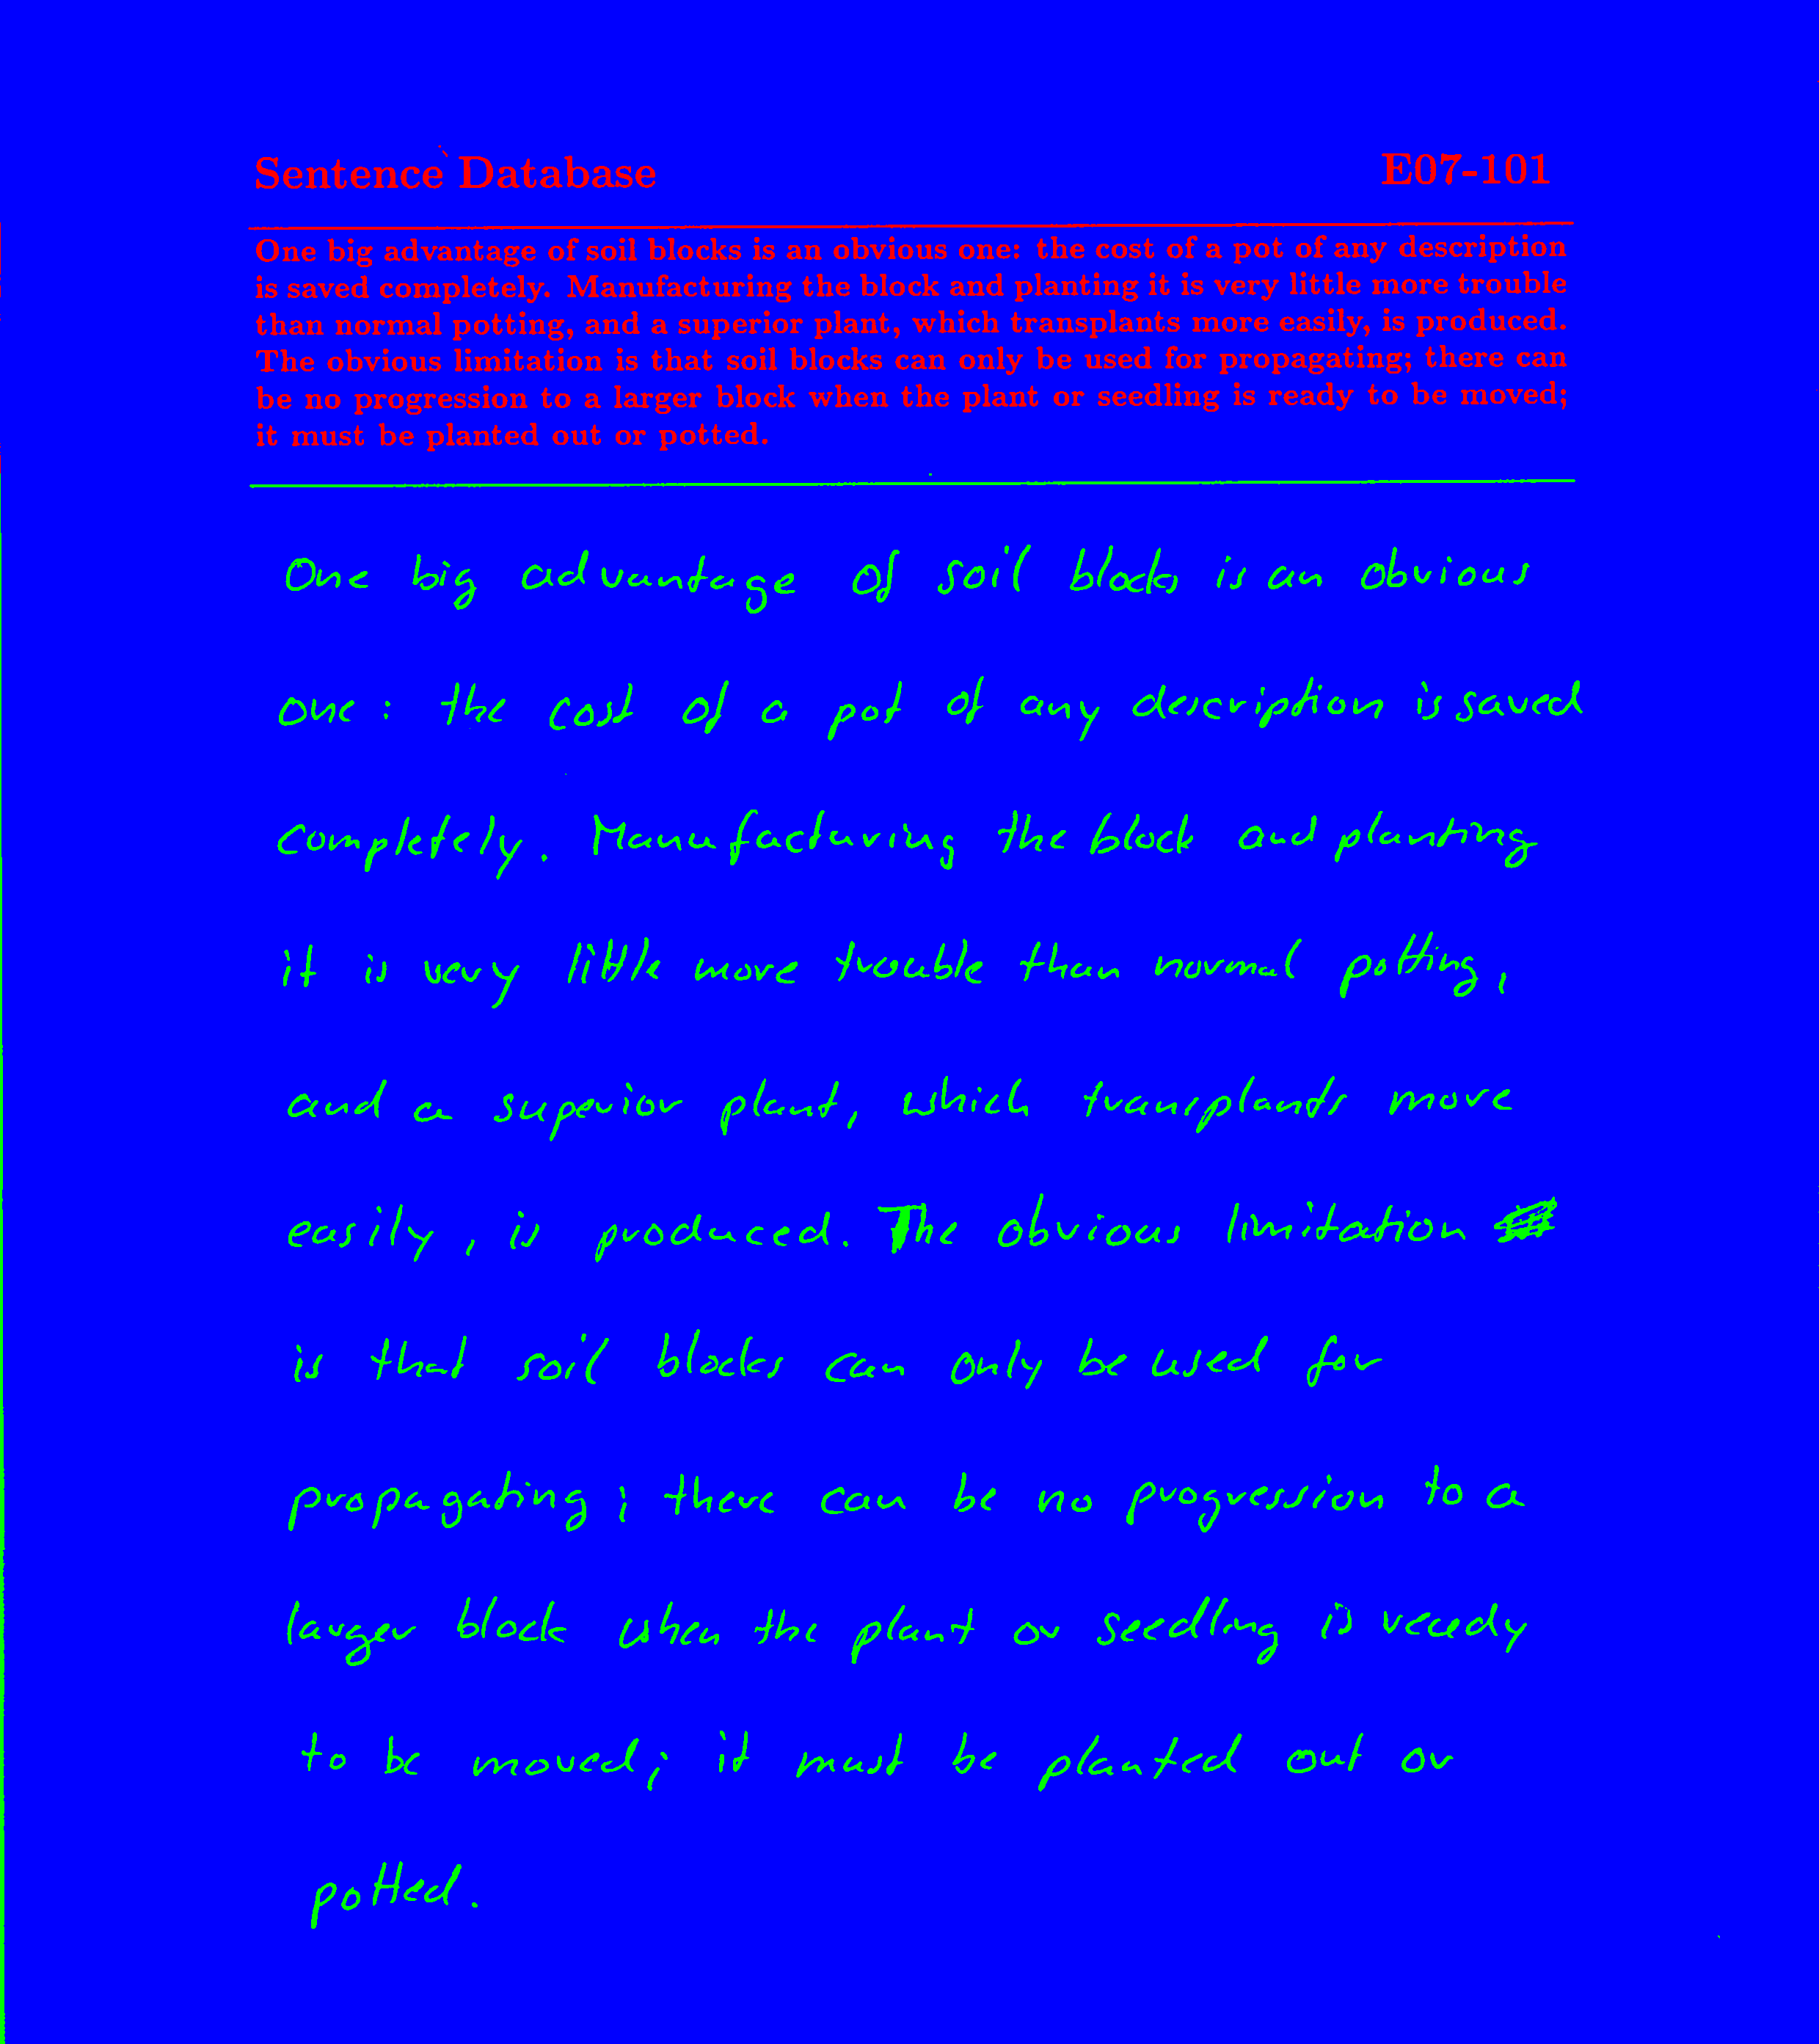 Sentence Database E07-101
One big advantage of soil blocks is an obvious one: the cost of a pot of any description
is saved completely. Manufacturing the block and planting it is very little more trouble
than normal potting, and a superior plant, which transplants more easily, is produced.
The obvious limitation is that soil blocks can only be used for propagating; there can
be no progression to a larger block when the plant or seedling is ready to be moved;
it must be planted out or potted.
One big advantage of soil blocks is an obvious
one: the cost of a pot of any description is saved
completely. Manufacturing the block and planting
it is very little more trouble than normal potting,
and a superior plant, which transplants more
easily, is produced. The obvious limitation
is that soil blocks can only be used for
propagating; there can be no progression to a
larger block when the plant or seedling is ready
to be moved; it must be planted out or
potted.